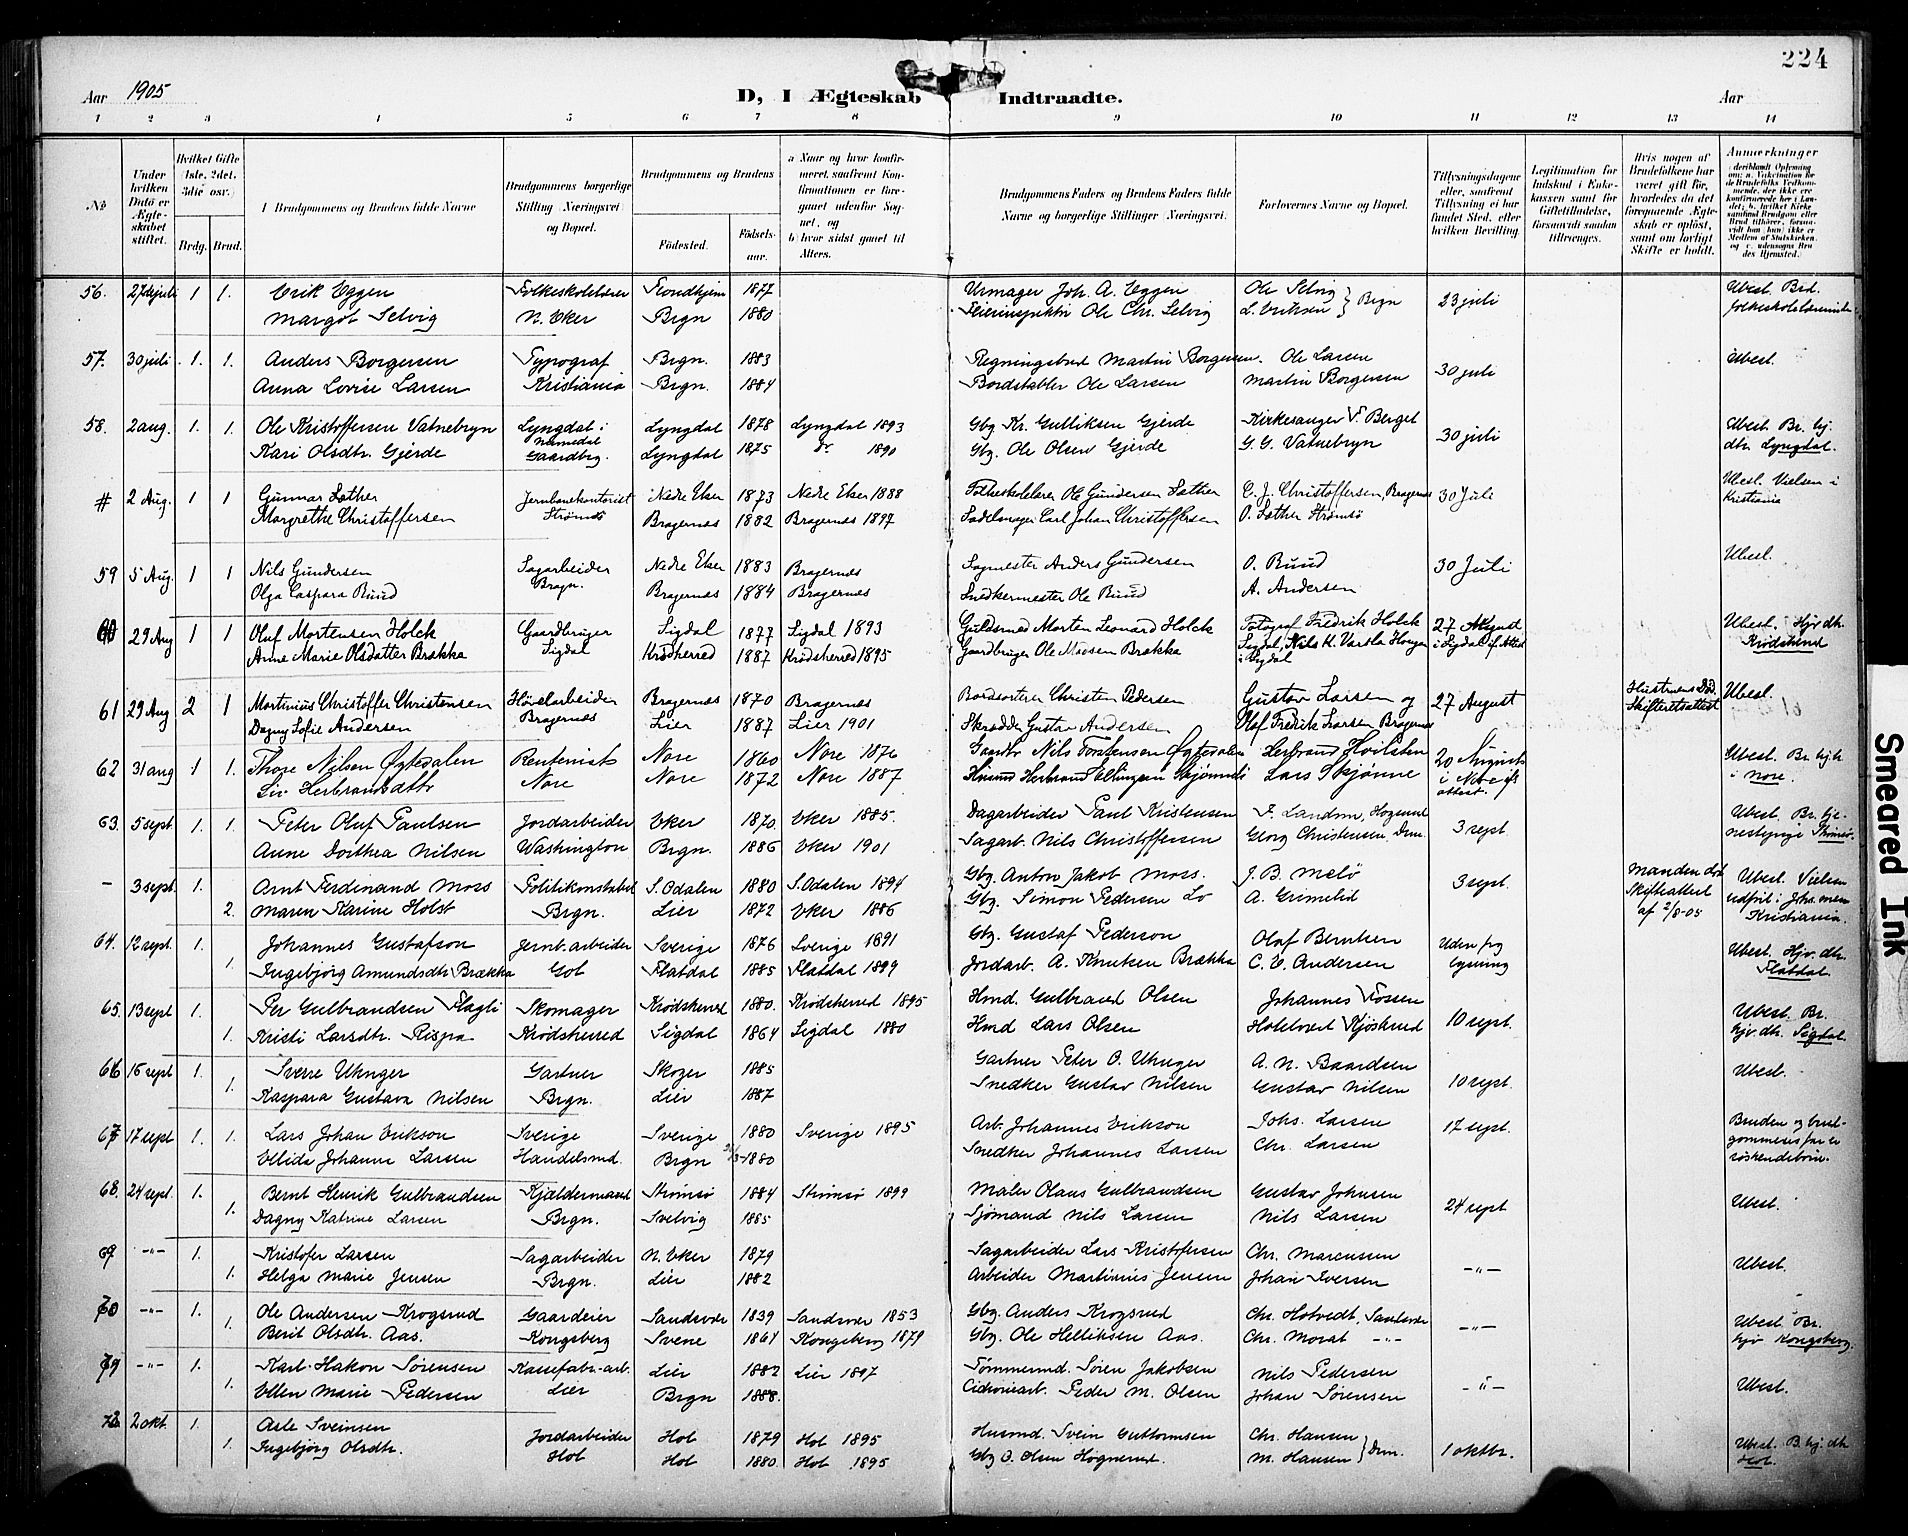 224
Aar 1905
D, I Ægteskab Indtraadte.
Aar
1 2 3 4 5 6 7 8 9 10 11 12 13 14
No
Under hvilken Dato er Ægteskabet stiftet.
Hvilket Gifte (1ste, 2det, 3die osv.)
Brdg. Brud.
Brudgommens og Brudens fulde Navne
Brudgommens borgerlige Stilling (Næringsvei) og Bopæl.
Brudgommens og Brudens
Fødested.
Fødselsaar.
a Naar og hvor konfirmeret, saafremt Konfirmationen er foregaaet udenfor Sognet, og
b) hvor sidst gaaet til Alters.
Brudgommens Faders og Brudens Faders fulde Navne og borgerlige Stillinger (Næringsvei.
Forlovernes Navne og Bopæl.
Tillysningsdagene eller, saafremt Tillysning ei har fundet Sted, efter hvilken Bevilling.
Legitimation for Indskud i Enkekassen samt for Giftetilladelse, forsaavidt saadan tiltrænges.
Hvis nogen af Brudefolkene har været gift før, hvorledes da det foregaaende Ægteskab er opløst, samt om lovligt Skifte er holdt.
Anmærkninger
56. 27de juli 1 1. Erik Eggen Folkeskolelærer Trondhjem 1877 Urmager Joh. A. Eggen Ole Selvig } Brgn 23 juli Ubesl. Brd.
Margot Selvig N. Eker Brgn 1880 Feierinspektør Ole Chr. Selvig L. Eriksen folkeskolelærerinde
57. 30 juli 1. 1. Anders Borgersen Typograf Brgn. 1883 Regningsbud Martin Borgersen. Ole Larsen 30 juli Ubesl.
Anna Lovise Larsen Kristiania Brgn. 1884 Bordstabler Ole Larsen Martin Borgersen
58. 2 aug. 1. 1. Ole Kristoffersen Vatnebryn Lyngdal i Numedal Lyngdal 1878 Lyngdal 1893 Gbg Kr. Gulliksen Gjerde Kirkesanger T. Berget 30 juli Ubesl. Br. hj.
Kari Olsdtr. Gjerde Gaardbrg. Lyngdal 1875 do 1890 Gbg. Ole Olsen Gjerde G. G. Vatnebryn dtr. Lyngdal.
# 2 Aug. 1 1 Gunnar Sather Jernbanekontorist Nedre Eker 1873 Nedre Eker 1888 Folkeskolelærer Ole Gundersen Sather C. J. Christoffersen, Bragernes 30 Juli Ubesl. Vielsen i
Margrethe Christoffersen Strømsø Bragernes 1882 Bragernes 1897 Sadelmager Carl Johan Christoffersen O. Sather Strømsø Kristiania
59 5 Aug. 1 1 Nils Gundersen Sagarbeider Nedre Eker 1883 Bragernes Sagmester Anders Gundersen O. Ruud 30 Juli Ubesl.
Olga Caspara Ruud Bragn. Bragernes 1884 Bragernes Snedkermester Ole Ruud A. Andersen
60 29 Aug 1 1 Oluf Mortensen Holck Gaardbruger Sigdal 1877 Sigdal 1893 Guldsmed Morten Leonard Holck Fotograf Fredrik Holck 27 August Ubesl. Hjv. dtr.
Anne Marie Olsdatter Brækka Sigdal Krødsherred 1887 Krødsherred 1895 Gaardbruger Ole Moesen Brækka Sigdal, Nils K. Vartla Haugen i Sigdal i Sigdal if. Attest Krødsherred
61 29 Aug 2 1 Martinius Christoffer Christensen Høvelarbeider Bragernes 1870 Bragernes Bordsorterer Christen Pedersen Gustav Larsen og 27 August Hustruens Død. Ubesl.
Dagny Sofie Andersen Bragernes Lier 1887 Lier 1901 Skrædder Gustav Andersen Olaf Fredrik Larsen Bragernes Skifteretsattest
62 31 aug 1 1. Thore Nilsen Øgtedalen Rentenist Nore 1860 Nore 1876 Gaardbr Nils Torstensen Øgtedalen Herbrand Hvilsten 20 August Ubesl. Br. hj. h.
Liv Herbrandsdtr Nore Nore 1872 Nore 1887 Husmd Herbrand Ellingsen Skjønne Lars Skjønne i Nore if. attest. i Nore.
63. 5 sept. 1. 1. Peter Oluf Paulsen Jordarbeider Eker 1870. Eker 1885. Dagarbeider Paul Kristensen F. Landm, Hogsund 3 sept. Ubesl. Br. tje-
Anne Dorthea Nilsen Washington Brgn. 1886 Eker 1901 Sagarb. Nils Christoffersen Georg Christensen, Drm. nestepige Strømsø.
- 3 sept. 1. Arnt Ferdinand Moss Politikonstabel S. Odalen 1880 S. Odalen 1894 Gbg. Anton Jakob Moss. J. B. Melø 3 sept. Manden død Ubesl. Vielsen
2. Maren Karine Holst Brgn. Lier 1872 Eker 1886 Gbg. Simon Pedersen Lo A. Grimelid Skifteattest af 2/8-05 udført i Johs. men. Kristiania.
64. 12 sept. 1. Johannes Gustafson Jernb. arbeider Sverige 1876 Sverige 1891 Gbg. Gustaf Pederson Olaf Berntsen Uden frg Ubesl. Hjv. dtr.
1. Ingebjørg Amundsdtr Brækka Gol Flatdal 1885 Flatdal 1899 Jordarb. A. Knutsen Brækka C. E. Andersen lysning Flatdal.
65. 13 sept 1. Per Gulbrandsen Slagli Skomager Krødsherred 1880. Krødsherred 1895 Hmd. Gulbrand Olsen Johannes Fossen 10 sept. Ubesl. Br.
1. Kristi Larsdtr. Rispa Krødsherred Sigdal 1864 Sigdal 1880 Hmd Lars Olsen Hotelvert Kjøsterud hjv dtr. Sigdal.
66 16 sept 1. Sverre Uhnger Gartner Skoger 1885 Gartner Peter O. Uhnger A. N. Baardsen 10 sept. Ubesl.
1. Kaspara Gustava Nilsen Brgn. Lier 1887 Snedker Gustav Nilsen Gustav Nilsen
67 17 sept 1. 1. Lars Johan Erikson Sverige Sverige 1880 Sverige 1895 Arb. Johannes Erikson Johs. Larsen 17 sept. Bruden og brud-
Ellida Johanne Larsen Handelsmd. Brgn 1880 Snedker Johannes Larsen Chr. Larsen gommens far er søskendebørn.
68. 24 sept. 1. Bernt Henrik Gulbrandsen Kjældermand Strømsø 1884 Strømsø 1899 Maler Olaus Gulbrandsen Gustav Johnsen 24 sept Ubesl.
1. Dagny Katrine Larsen Brgn. Svelvig 1885 Sjømand Nils Larsen Nils Larsen
69 -"- 1. Kristofer Larsen Sagarbeider N. Eker 1879 Sagarbeider Lars Kristofersen Chr. Marcussen -"- Ubesl.
1. Helga Marie Jensen Brgn. Lier 1882 Arbeider Martinius Jensen Johan Iversen
70 -"- 1. Ole Andersen Krogsrud Gaardeier Sandsvær 1839 Sandsvær 1853 Gbg. Anders Krogsrud Chr. Hotvedt, Sandsvær -"- Ubesl. Br.
1. Berit Olsdtr. Aas. Kongsberg Svene 1864 Kongsberg 1879 Gbg. Ole Helliksen Aas. Chr. Morat -"- hjv Kongsberg.
71 -"- 1. Karl Hakon Sørensen Kassefabr. arb. Lier 1882 Lier 1897 Tømmermd. Søren Jakobsen Nils Pedersen -"- Ubesl.
1. Ellen Marie Pedersen Lier Brgn 1888. Cichoriarb. Peder M. Olsen Johan Sørensen
72 2 okt. 1. Asle Sveinsen Jordarbeider Hol 1879 Hol 1895 Husmd. Svein Guttormsen Chr. Hansen } Drm. 1 oktbr. Ubesl. B. hj. dtr.
1. Ingebjørg Olsdtr. Hol Hol 1880. Hol 1895 Gbg O. Olsen Høgnerud. M. Hansen Hol.
Smeared Ink